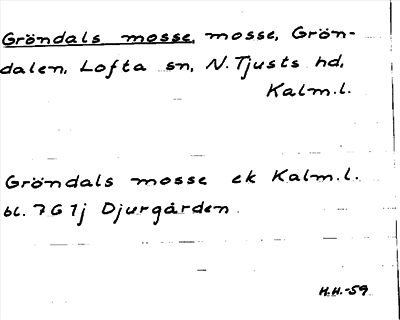 Gröndals mosse, mosse, Grön-
dalen, Lofta sn, N. Tjusts hd,
Kalm.l.
Gröndals mosse ek Kalm.l.
bl. 7G 1j Djurgården.
H.H.-59